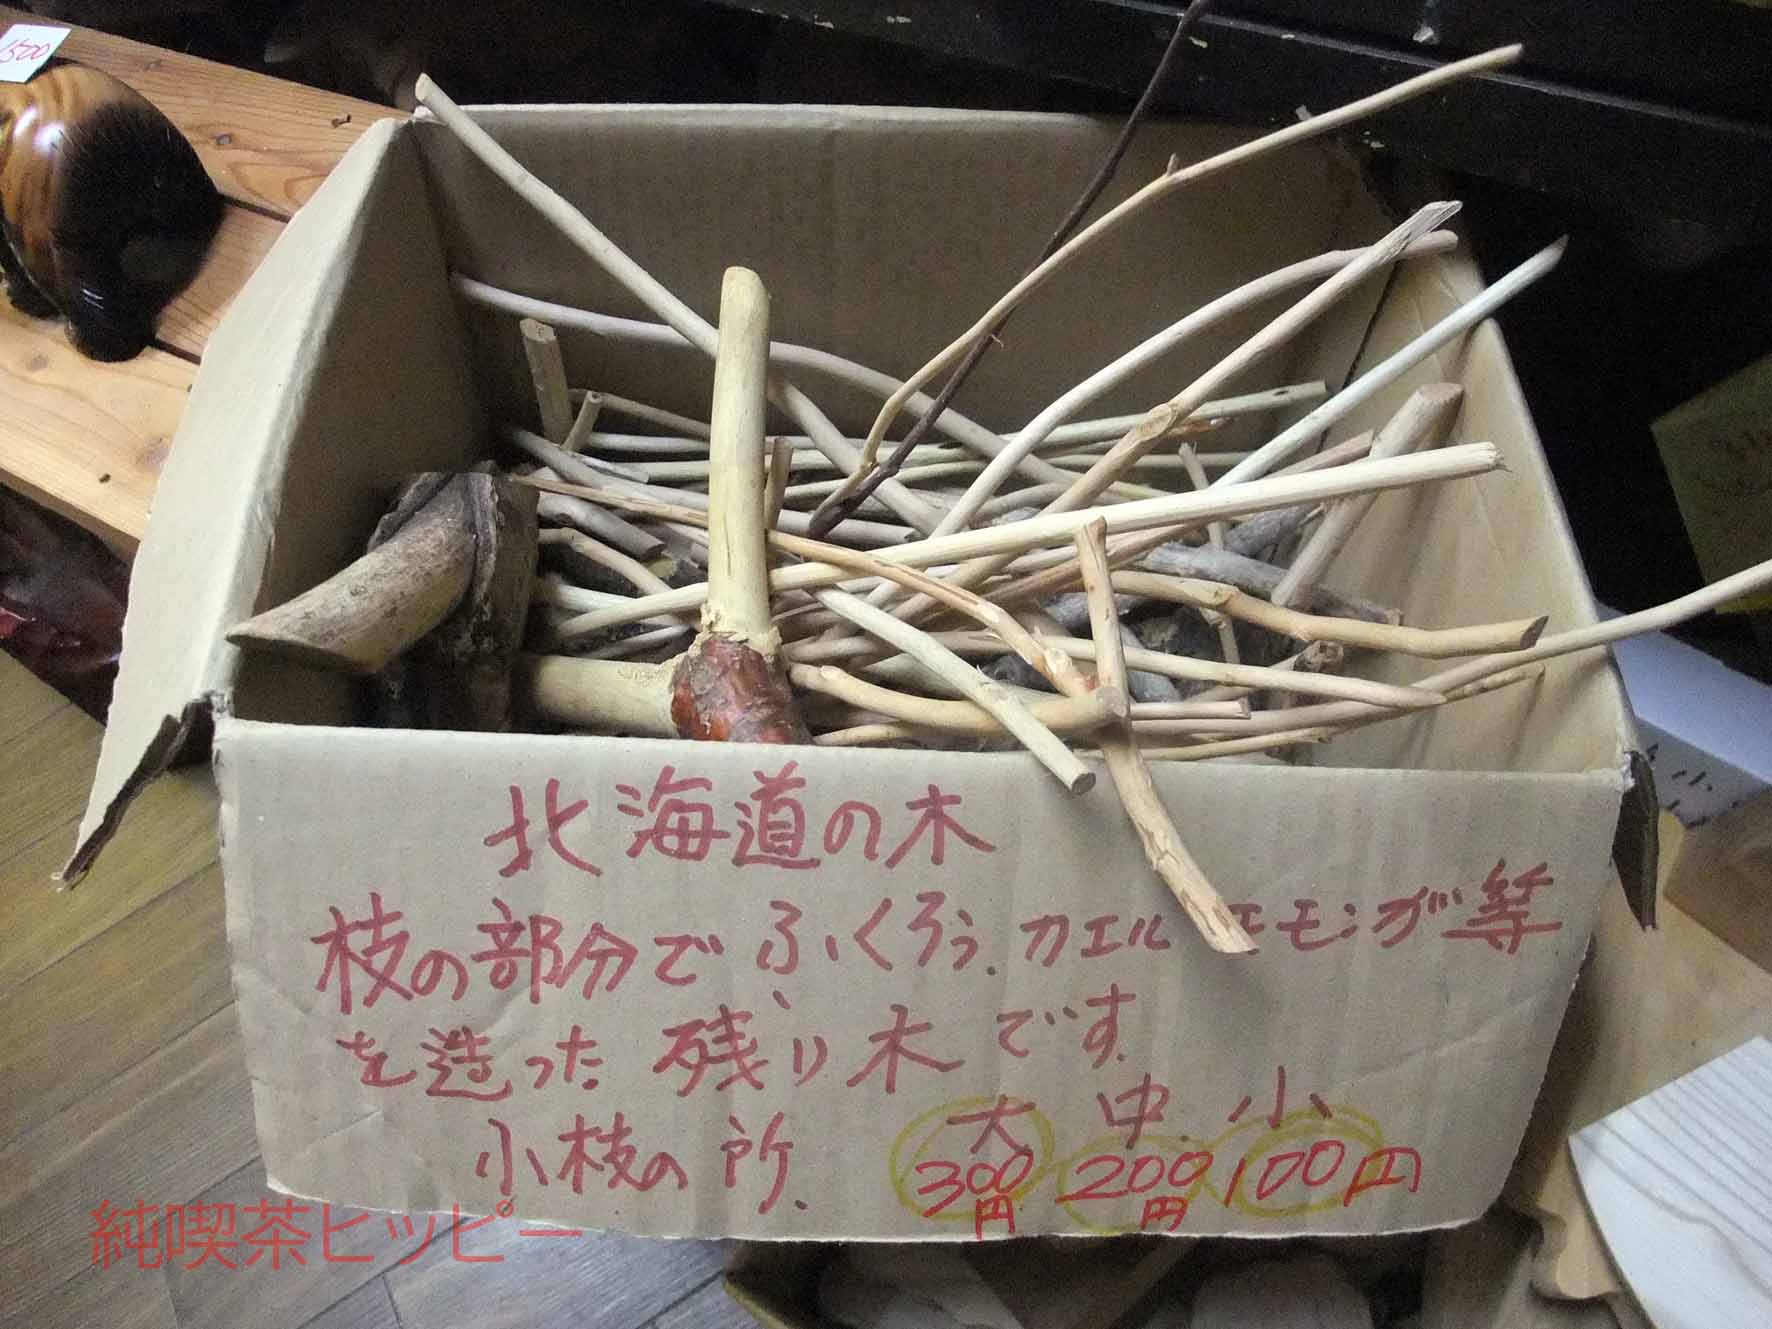 1500
北海道の木
枝の部分で、ふくろう、カエル エモモンガ等
を造った残り木です。
小枝の所、 大 中 小
300円 200円 100円
純喫茶ヒッピー